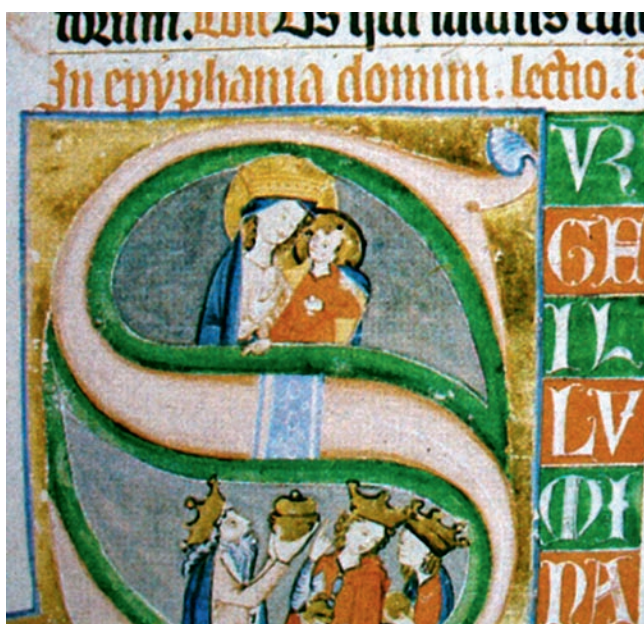 qui
In epyphania domini. lectio. i
S
VR
GE
IL
LV
MI
NA